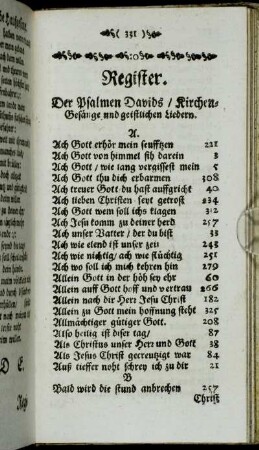 ( 331 )
Register.
Der Psalmen Davids / Kirchen-
Gesänge und geistlichen Liedern.
A.
Ach Gott erhör mein seufftzen 221
Ach Gott von himmel sih darein 3
Ach Gott / wie lang vergissest mein 5
Ach Gott thu dich erbarmen 308
Ach treuer Gott du hast auffgricht 40
Ach lieben Christen seyt getrost 234
Ach Gott wem soll ichs klagen 312
Ach Jesu komm zu deiner herd 257
Ach unser Vatter / der du bist 33
Ach wie elend ist unser zeit 243
Ach wie nichtig / ach wie flüchtig 251
Ach wo soll ich mich kehren hin 279
Allein Gott in der höh sey ehr 60
Allein auff Gott hoff und vertrau 266
Allein nach dir Herr Jesu Christ 182
Allein zu Gott mein hoffnung steht 325
Allmächtiger gütiger Gott. 208
Also heilig ist diser tag / 87
Als Christus unser Herr und Gott 38
Als Jesus Christ gecreutzigt war 84
Auß tieffer noht schrey ich zu dir 21
B
Bald wird die stund anbrechen 257
Christ